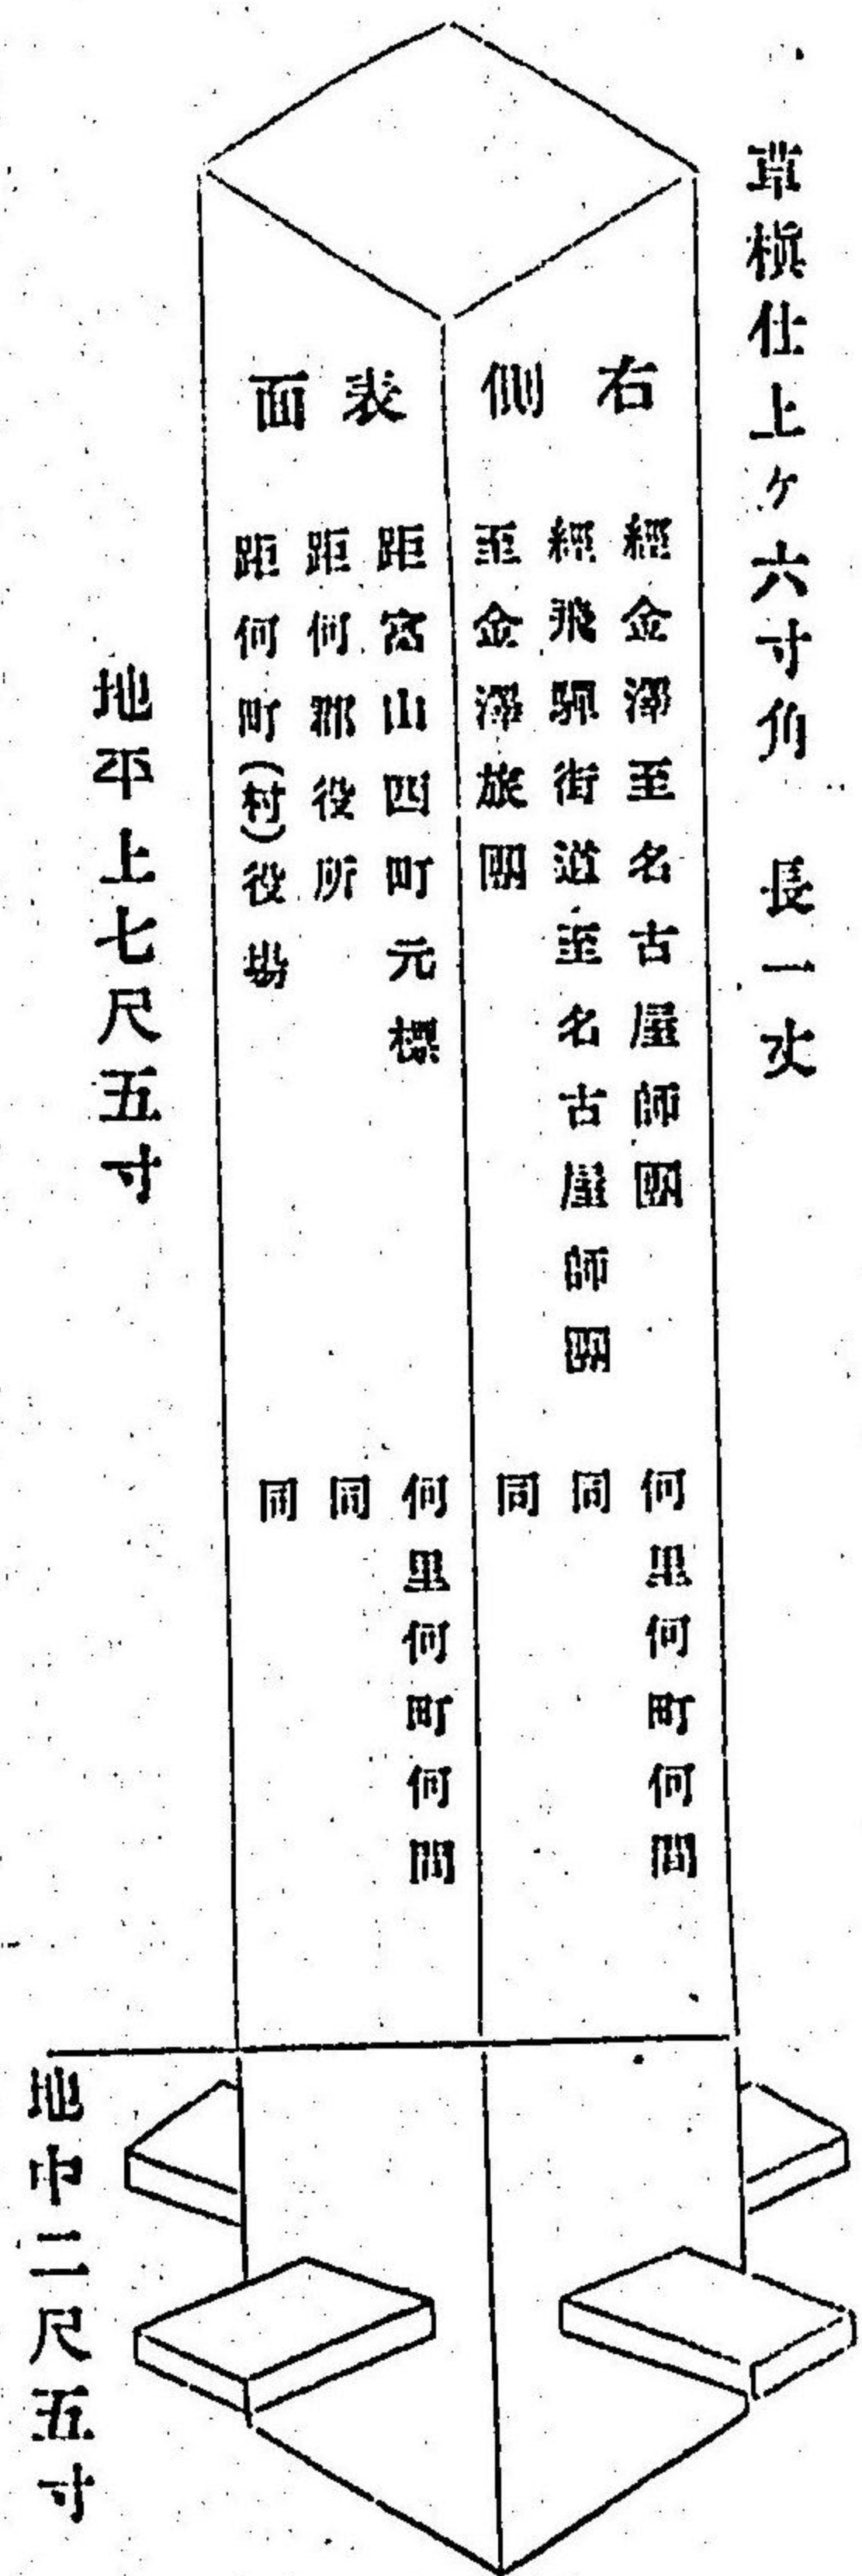 草槙仕上ケ六寸角　長一丈
右側
經金澤至名古屋師團　何里何町何間
經飛驒街道至名古屋師團　同
至金澤旅團　同
表面
距富山四町元標　何里何町何間
距何郡役所　同
距何町(村)役場　同
地平上七尺五寸
地中二尺五寸